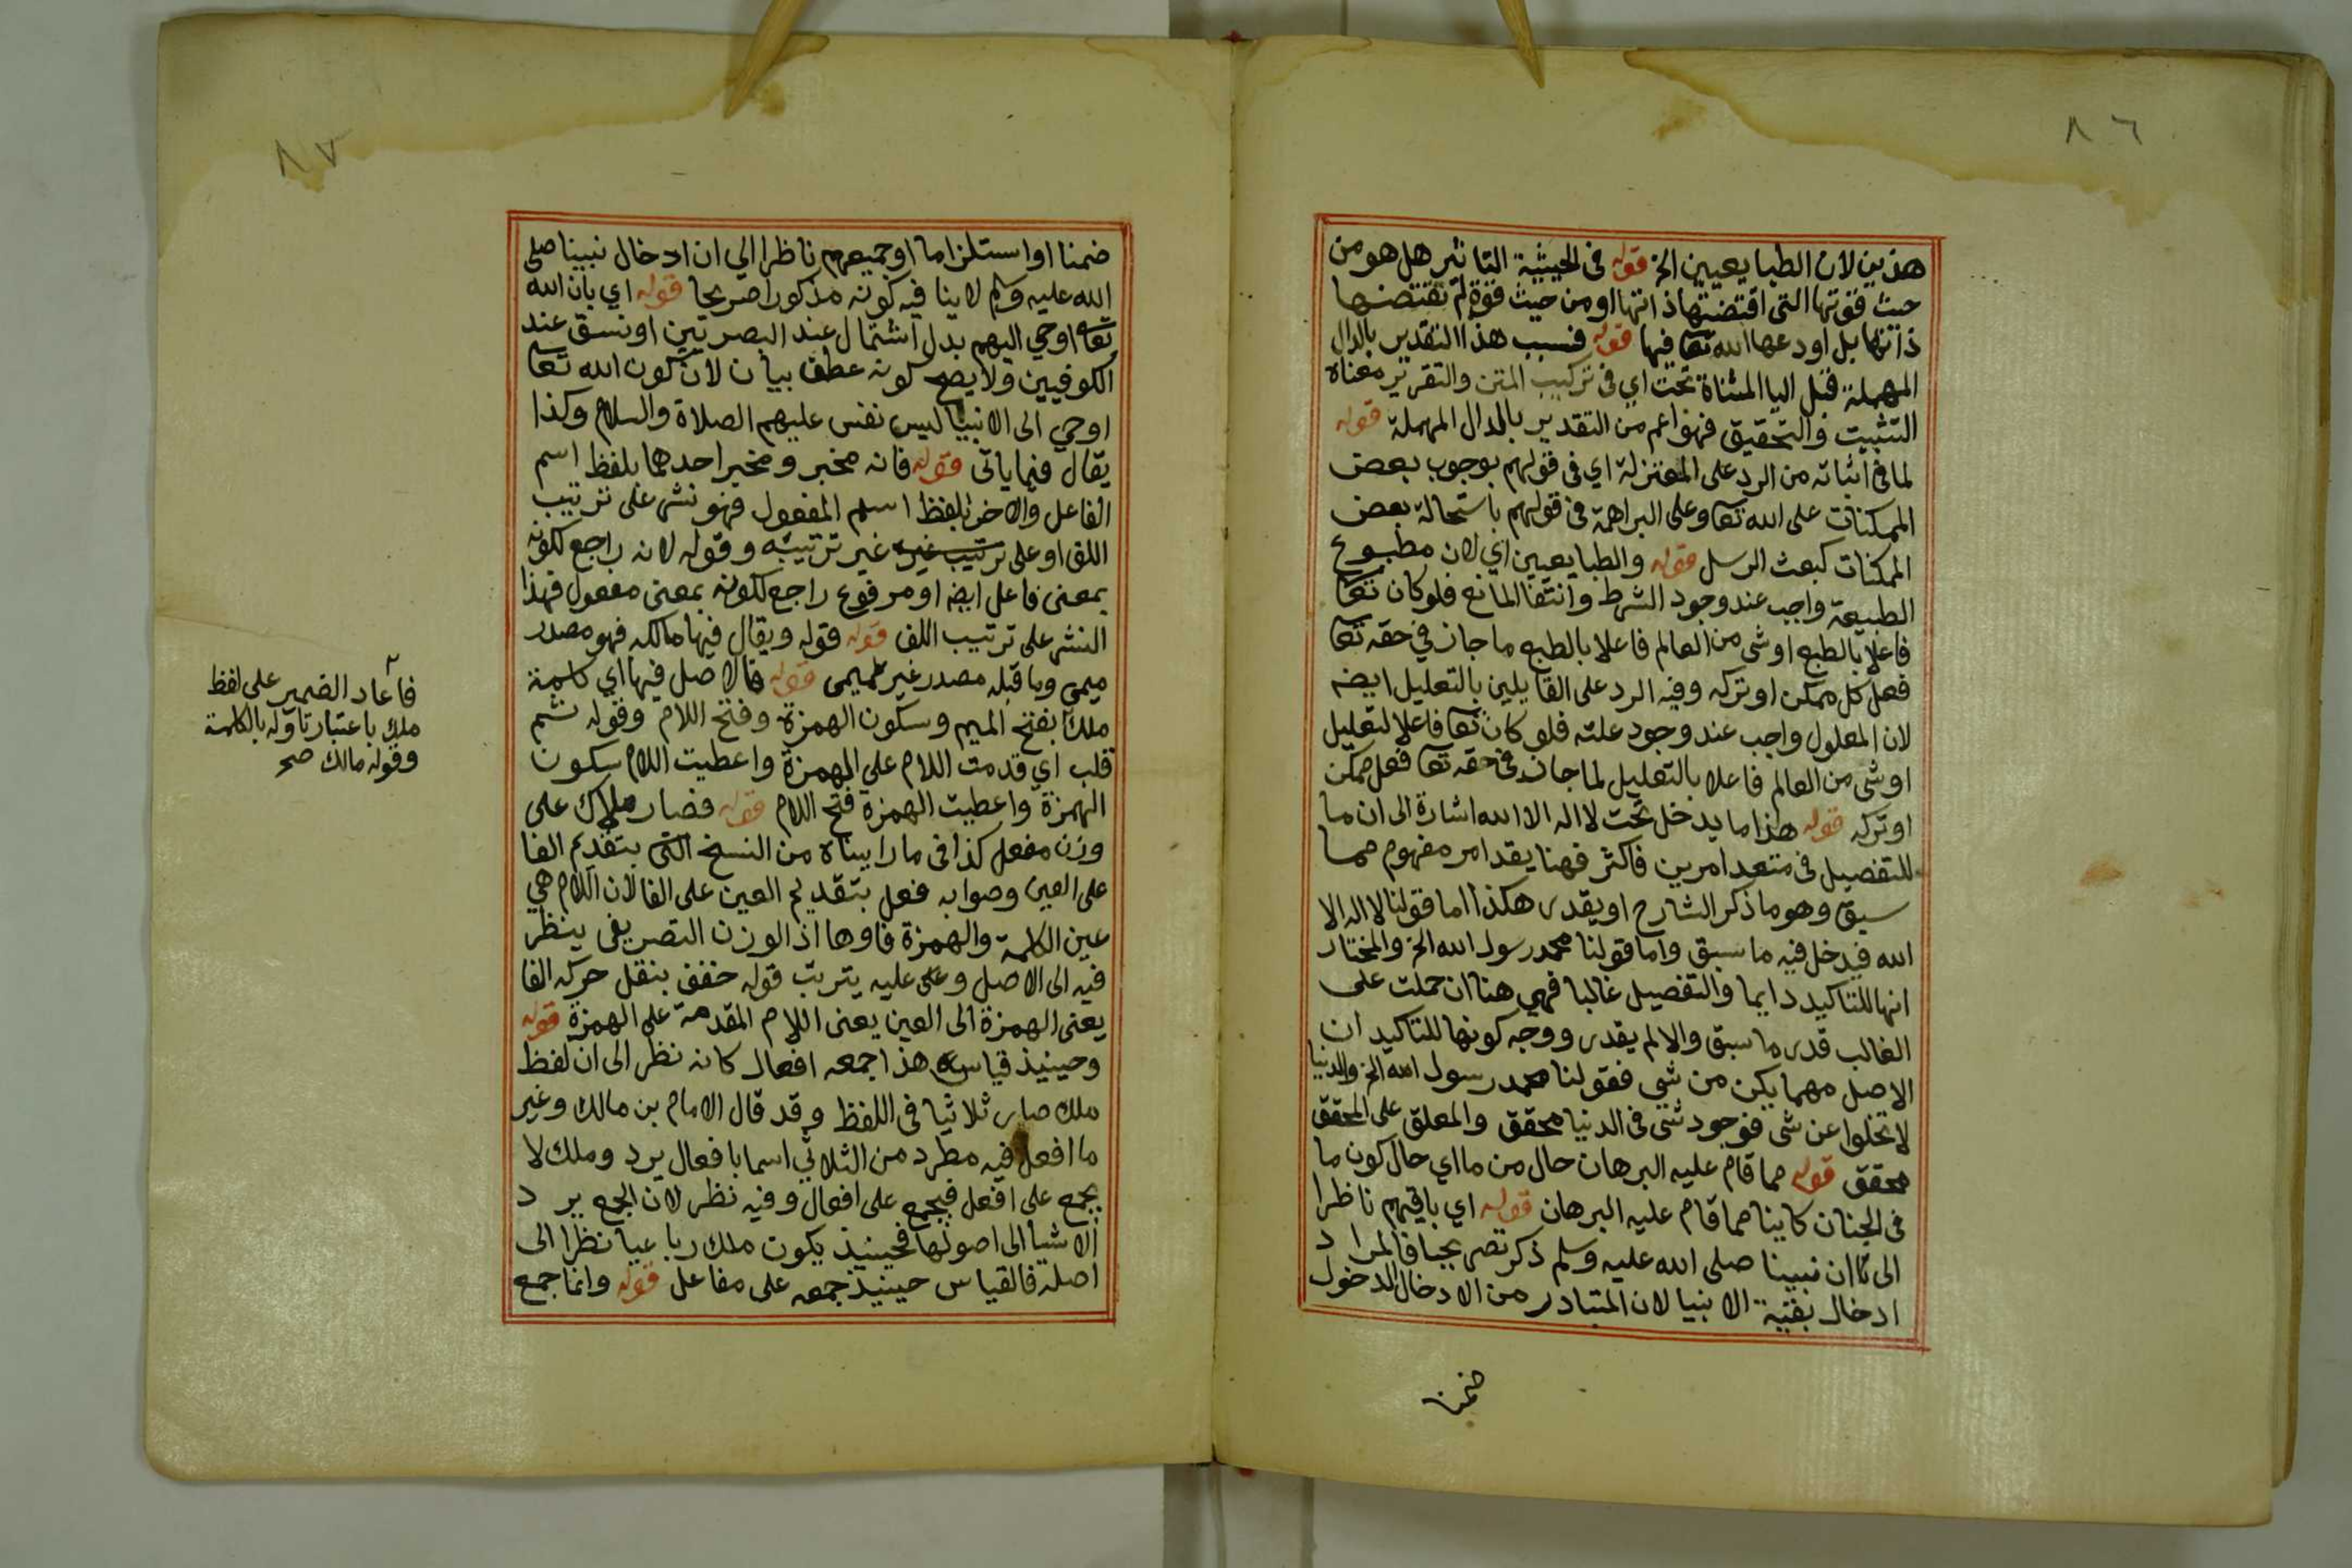 ٨٦
هذين لان الطبايعيين الخ قوله في الحيثية التاثير هل هو من
حيث قوتها التي اقتضتها ذاتها او من حيث قوة لم تقتضها
ذاتها بل اودعها الله تعا فيها قوله فسبب هذا التقدير بالدال
المهملة قبل اليا المثناة تحت اي في تركيب المتن والتقرير معناه
التثبيت والتحقيق فهو اعم من التقدير بالدال المهملة قوله
لما في اثباته من الرد على المعتزلة اي في قولهم بوجوب بعض
الممكنات على الله تعا وعلى البراهمة في قولهم باستحالة بعض
الممكنات كبعث الرسل قوله والطبايعيين اي لان مطبوع
الطبيعة واجب عند وجود الشرط وانتفا المانع فلو كان تعا
فاعلا بالطبع او شي من العالم فاعلا بالطبع ما جاز في حقه تعا
فعل كل ممكن او تركه وفيه الرد على القايلين بالتعليل ايضه
لان المعلول واجب عند وجود علته فلو كان تعا فاعلا لتعليل
او شي من العالم فاعلا بالتعليل لما جاز في حقه تعا فعل ممكن
او تركه قوله هذا ما يدخل تحت لا اله الا الله اشارة الى ان ما
للتفصيل في متعد امرين فاكثر فهنا يقد امر مفهوم مما
سبق وهو ما ذكر الشارح او يقدر هكذا اما قولنا لا اله الا
الله فيدخل فيه ما سبق واما قولنا محمد رسول الله الخ والمختار
انها للتاكيد دايما والتفصيل غالبا فهي هنا ان حملت على
الغالب قدر ما سبق والا لم يقدر ووجه كونها للتاكيد ان
الاصل مهما يكن من شي فقولنا محمد رسول الله الخ والدنيا
لا تخلوا عن شي فوجود شي في الدنيا محقق والمعلق على المحقق
محقق قوله مما قام عليه البرهان حال من ما اي حال كون ما
في الجنان كاينا مما قام عليه البرهان قوله اي باقيهم ناظرا
الى ان نبينا صلى الله عليه وسلم ذكر تصريحا فالمراد
ادخال بقية الانبيا لان المتبادر من الادخال الدخول
ضمنا
٨٧
ضمنا او استلزاما او جميعهم ناظرا الي ان ادخال نبينا صلى
الله عليه وسلم لا ينا فيه كونه مذكورا صريحا قوله اي بان الله
تعا اوحي اليهم بدل اشتمال عند البصريين او نسق عند
الكوفيين ولا يصح كونه عطف بيان لان كون الله تعا
اوحي الى الانبيا ليس نفس عليهم الصلاة والسلام وكذا
يقال فيما ياتي قوله فانه مخبر ومخبر احدهما بلفظ اسم
الفاعل والاخر بلفظ اسم المفعول فهو نشر على ترتيب
اللف او على ترتيب غيره غير ترتيبه وقوله لانه راجع لكونه
بمعنى فاعل ايضه او مرفوع راجع لكونه بمعنى مفعول فهذا
النشر على ترتيب اللف قوله قوله ويقال فيها مالكه فهو مصدر
ميمي وما قبله مصدر غير ميمي قوله فالاصل فيها اي كلمة
ملك بفتح الميم وسكون الهمزة وفتح اللام وقوله ثم
قلب اي قدمت اللام على الهمزة واعطيت اللام سكون
الهمزة واعطيت الهمزة فتح اللام قوله فصار ملاك على
وزن مفعل كذا في ما رايناه من النسخ التي بتقديم الفا
على العين وصوابه فعل بتقديم العين على الفا لان اللام هي
عين الكلمة والهمزة فاوها اذ الوزن التصريفي ينظر
فيه الى الاصل وعلى عليه يترتب قوله خفف بنقل حركه الفا
يعني الهمزة الى العين يعني اللام المقدمة على الهمزة قوله
وحينيذ قياسه هذا جمعه افعال كانه نظر الى ان لفظ
ملك صار ثلاثيا في اللفظ وقد قال الامام بن مالك وغير
ما افعل فيه مطرد من الثلاثي اسما بافعال يرد وملك لا
يجمع على افعل فيجمع على افعال وفيه نظر لان الجمع يرد
الاشيا الى اصولها فحينيذ يكون ملك رباعيا نظرا الى
اصله فالقياس حينيذ جمعه على مفاعل قوله وانما جمع
فاعاد الضمير على لفظ
ملك باعتبار تاوله بالكلمة
وقوله مالك صح